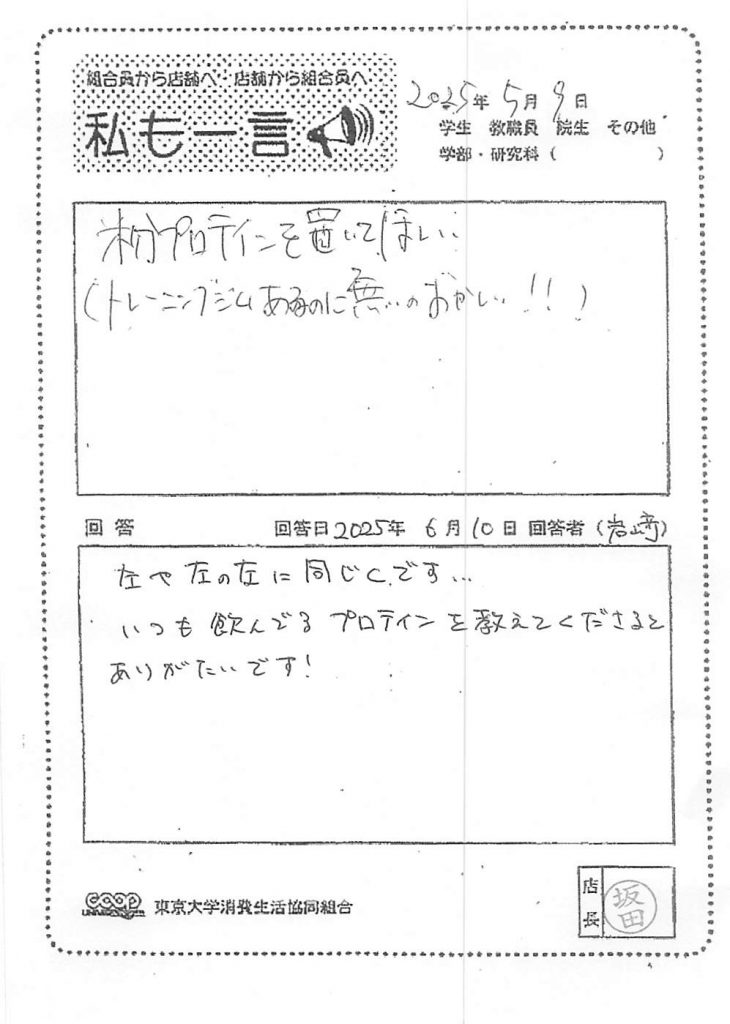 組合員から店舗へ 店舗から組合員へ
私も一言
2025年 5月 9日
学生 教職員 院生 その他
学部・研究科（　　　　）
粉プロテインを置いてほしい
（トレーニングジムあるのに無いのおかしい!!）
回答 回答日2025年 6月10日 回答者（岩崎）
左や左の左に同じくです…
いつも飲んでるプロテインを教えてくださると
ありがたいです!
coop 東京大学消費生活協同組合
店長 坂田